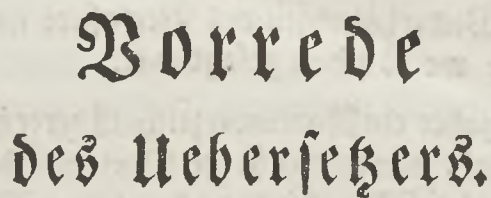 Vorrede
des Ueberſetzers.